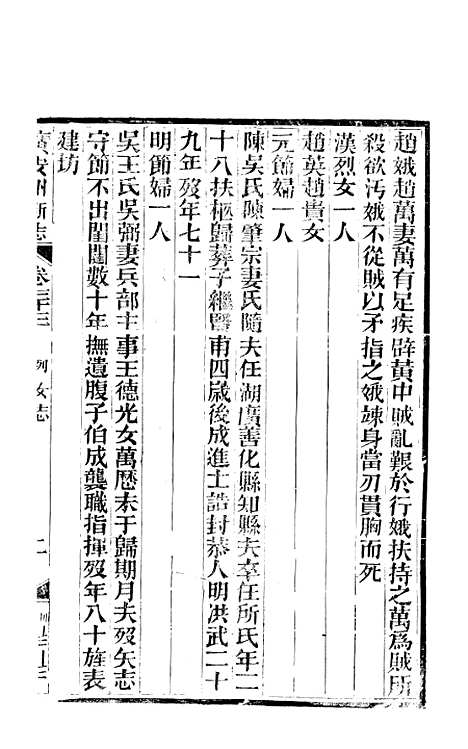 趙娥趙萬妻萬有足疾辟黃中賊亂艱於行娥扶持之萬爲賊所
殺欲汚娥不從賊以矛指之娥竦身當刃貫胸而死
漢烈女一人
趙英趙貴女
元節婦一人
陳吳氏陳肇宗妻氏隨夫任湖廣善化縣知縣夫卒任所氏年二
十八扶柩歸葬子繼賢甫四歲後成進士誥封恭人明洪武二十
九年歿年七十一
明節婦一人
吳王氏吳弼妻兵部主事王德光女萬歷未于歸期月夫歿矢志
守節不出閨閫數十年撫遺腹子伯成襲職指揮歿年八十旌表
建坊
廣安州新志 卷三十三 列女志 二